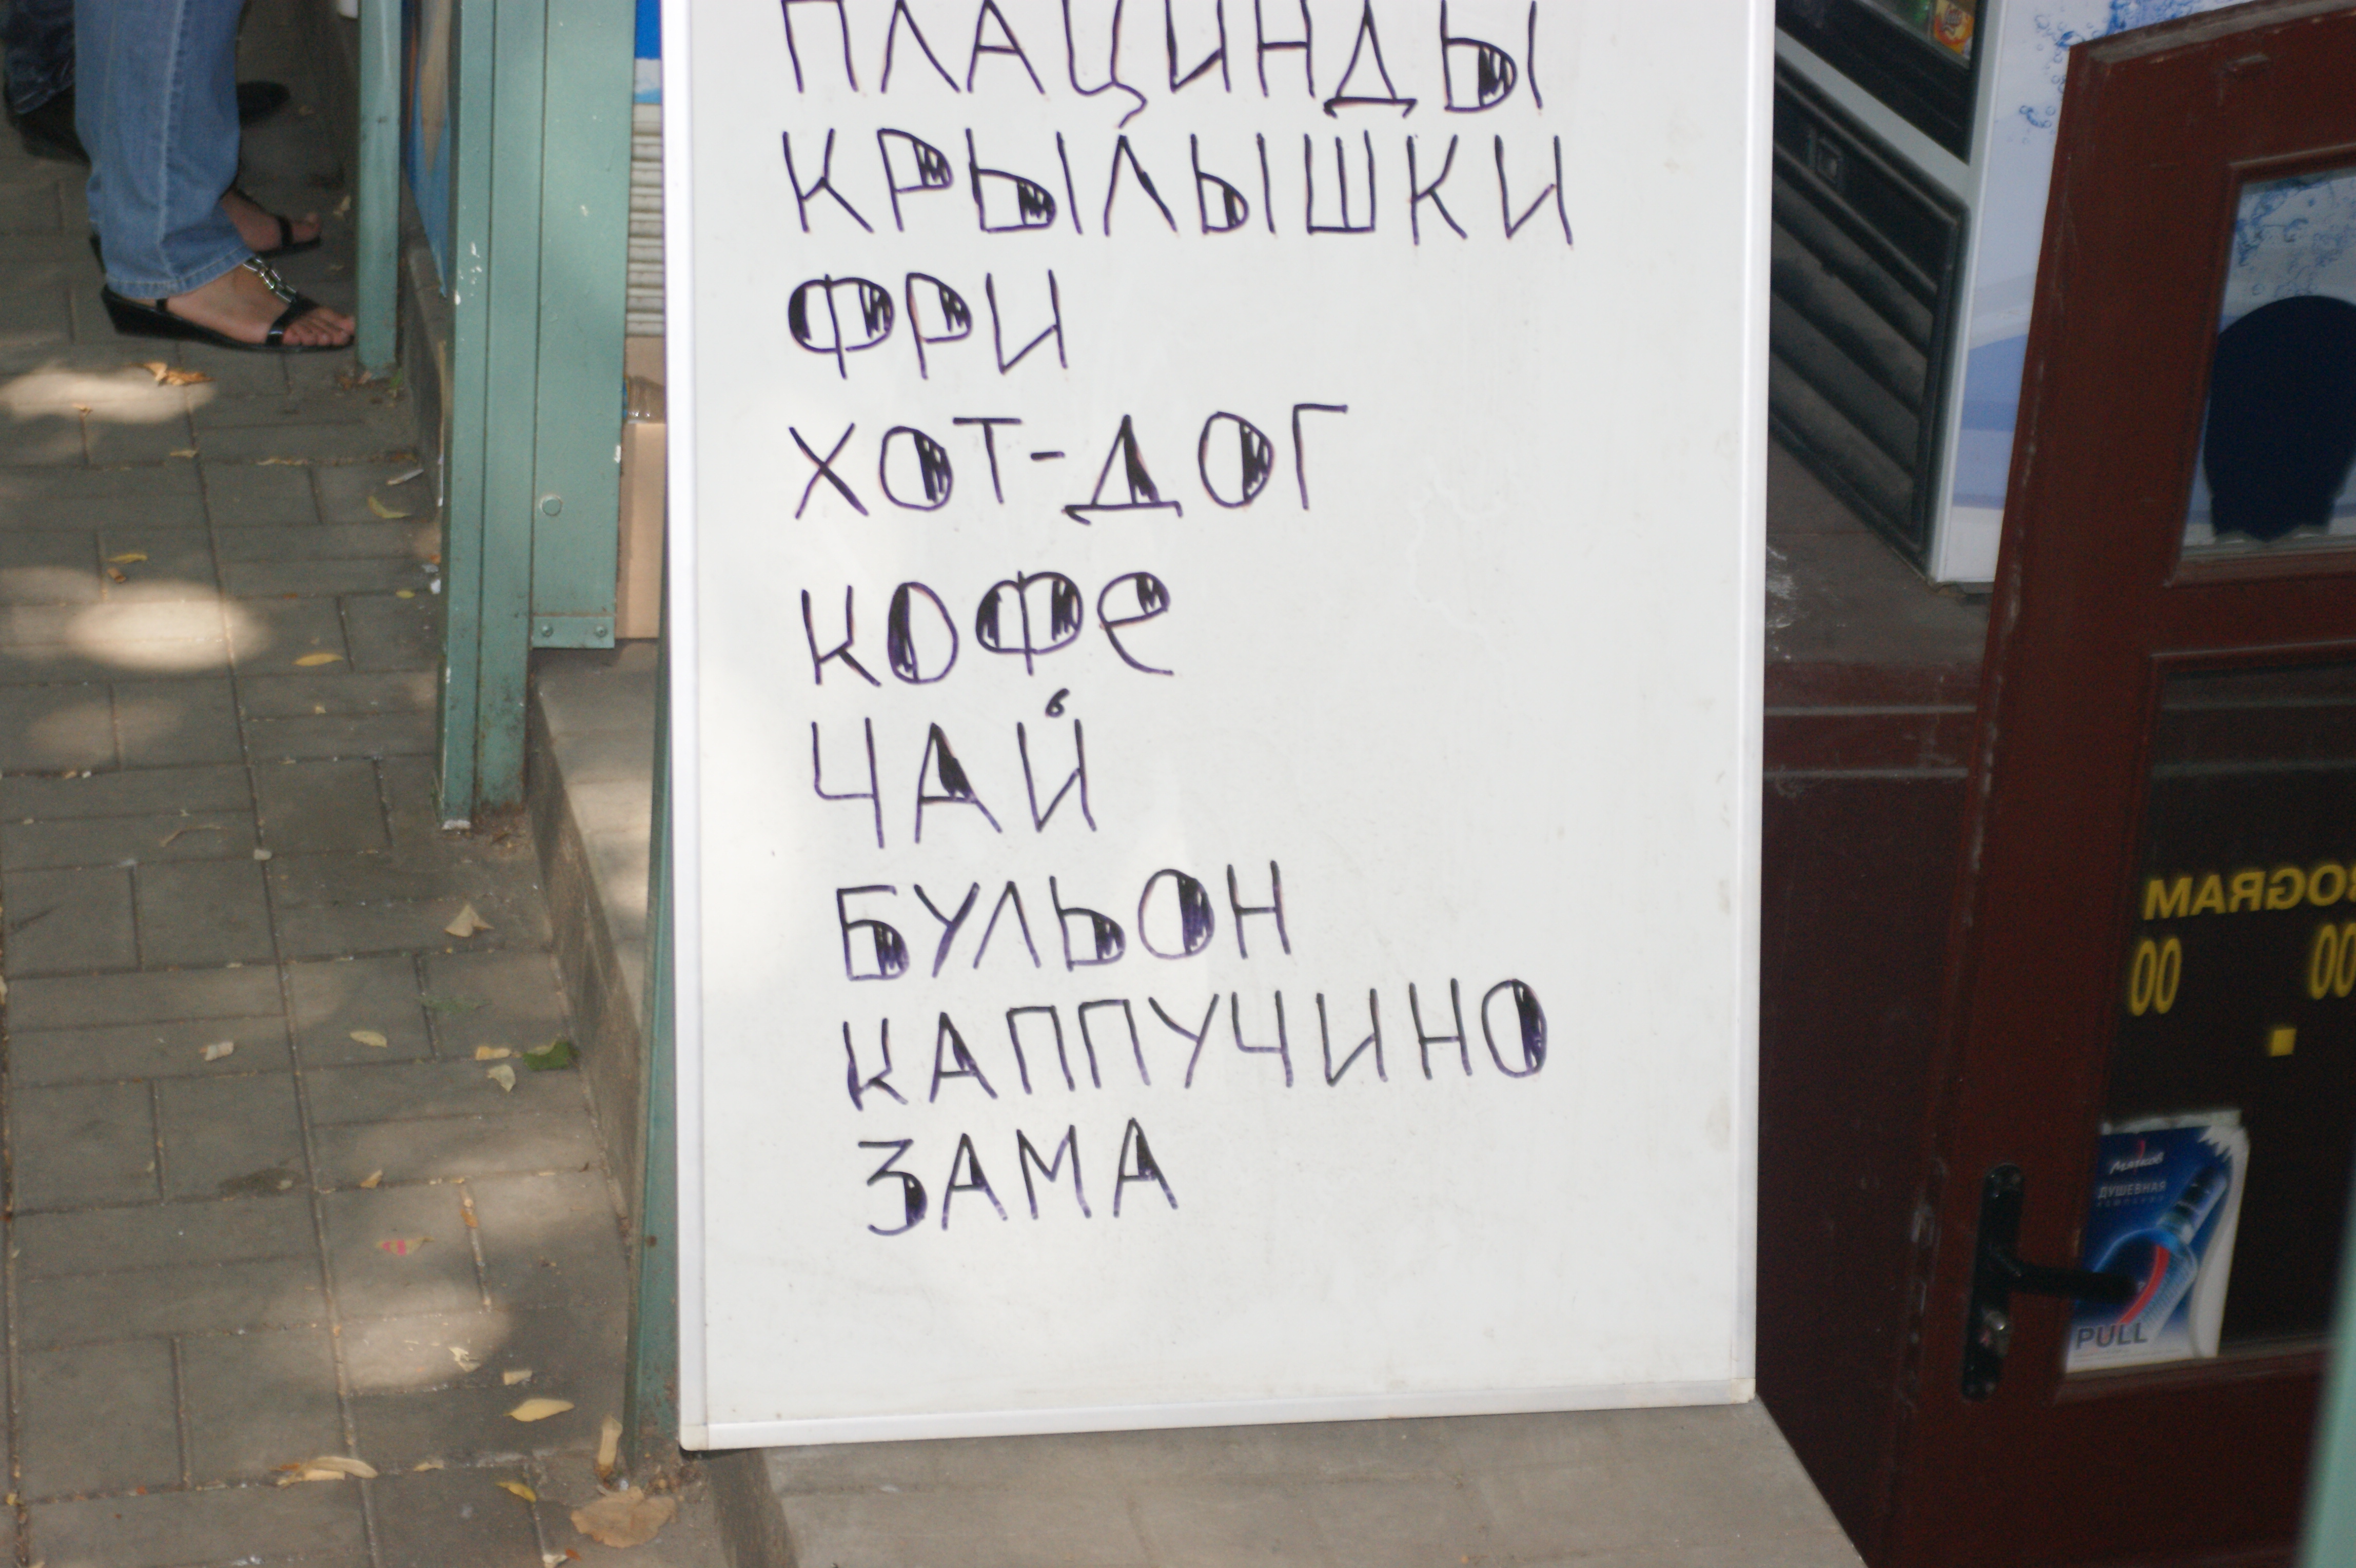 ПЛАЦИНДЫ
КРЫЛЫШКИ
ФРИ
ХОТ-ДОГ
КОФе
ЧАЙ
БУЛЬОН
КАППУЧИНО
ЗАМА
00 00
ДУШЕВНАЯ
PULL